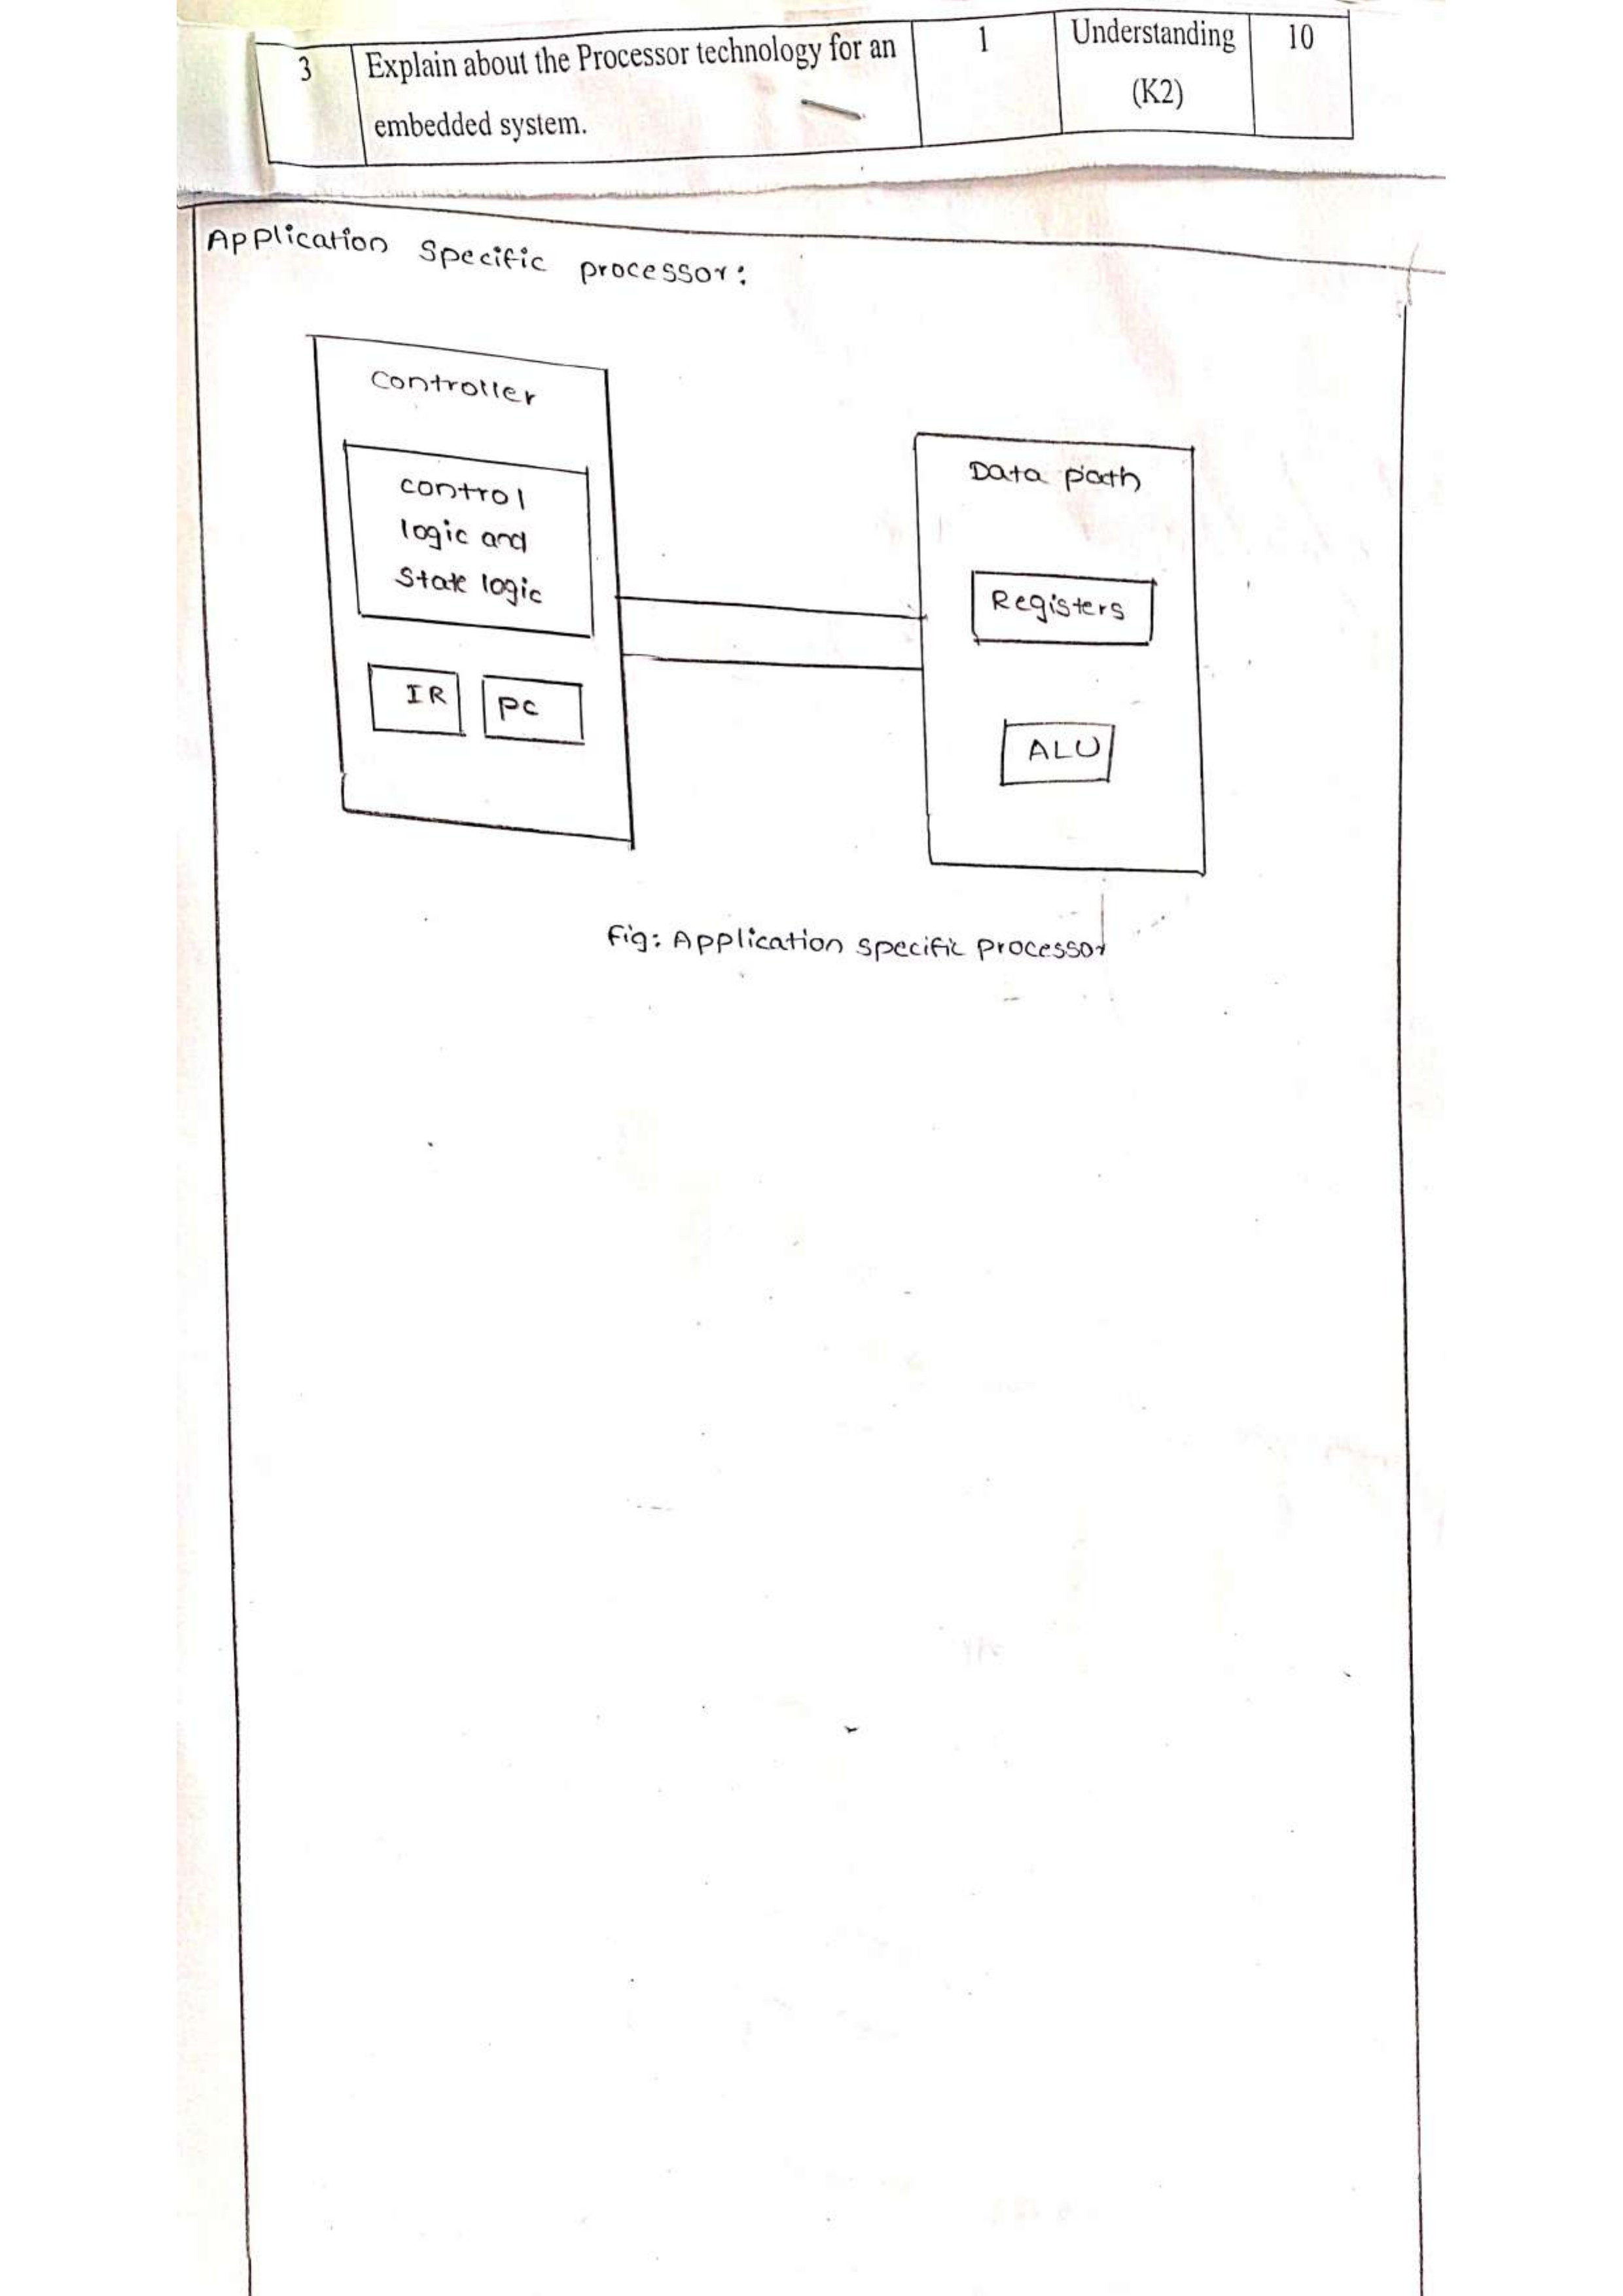 3 Explain about the Processor technology for an 1 Understanding 10
embedded system. (K2)
Application Specific processor:
Controller
control
logic and
State logic
IR PC
Data path
Registers
ALU
Fig: Application specific processor